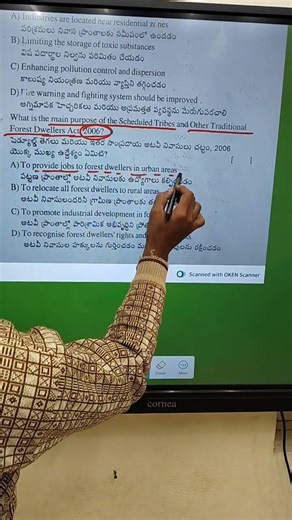 A) Industries are located near residential zones
పరిశ్రమలు నివాస ప్రాంతాలకు సమీపంలో ఉండడం
B) Limiting the storage of toxic substances
విష పదార్థాల నిల్వను పరిమితం చేయడం
C) Enhancing pollution control and dispersion
కాలుష్య నియంత్రణ మరియు వ్యాప్తిని తగ్గించడం
D) Fire warning and fighting system should be improved .
అగ్నిమాపక హెచ్చరికలు మరియు అప్రమత్తత వ్యవస్థను మెరుగుపరచాలి
What is the main purpose of the Scheduled Tribes and Other Traditional
Forest Dwellers Act 2006?
షెడ్యూల్డ్ తెగలు మరియు ఇతర సాంప్రదాయ అటవీ నివాసులు చట్టం, 2006
యొక్క ముఖ్య ఉద్దేశ్యం ఏమిటి? [ ]
A) To provide jobs to forest dwellers in urban areas
పట్టణ ప్రాంతాల్లో అటవీ నివాసులకు ఉద్యోగాలు కల్పించడం
B) To relocate all forest dwellers to rural areas
అటవీ నివాసులందరినీ గ్రామీణ ప్రాంతాలకు
C) To promote industrial development in
అటవీ ప్రాంతాల్లో పారిశ్రామిక అభివృద్ధిని
D) To recognise forest dwellers' rights and
అటవీ నివాసుల హక్కులను గుర్తించడం రక్షించడం
Scanned with OKEN Scanner
cornea